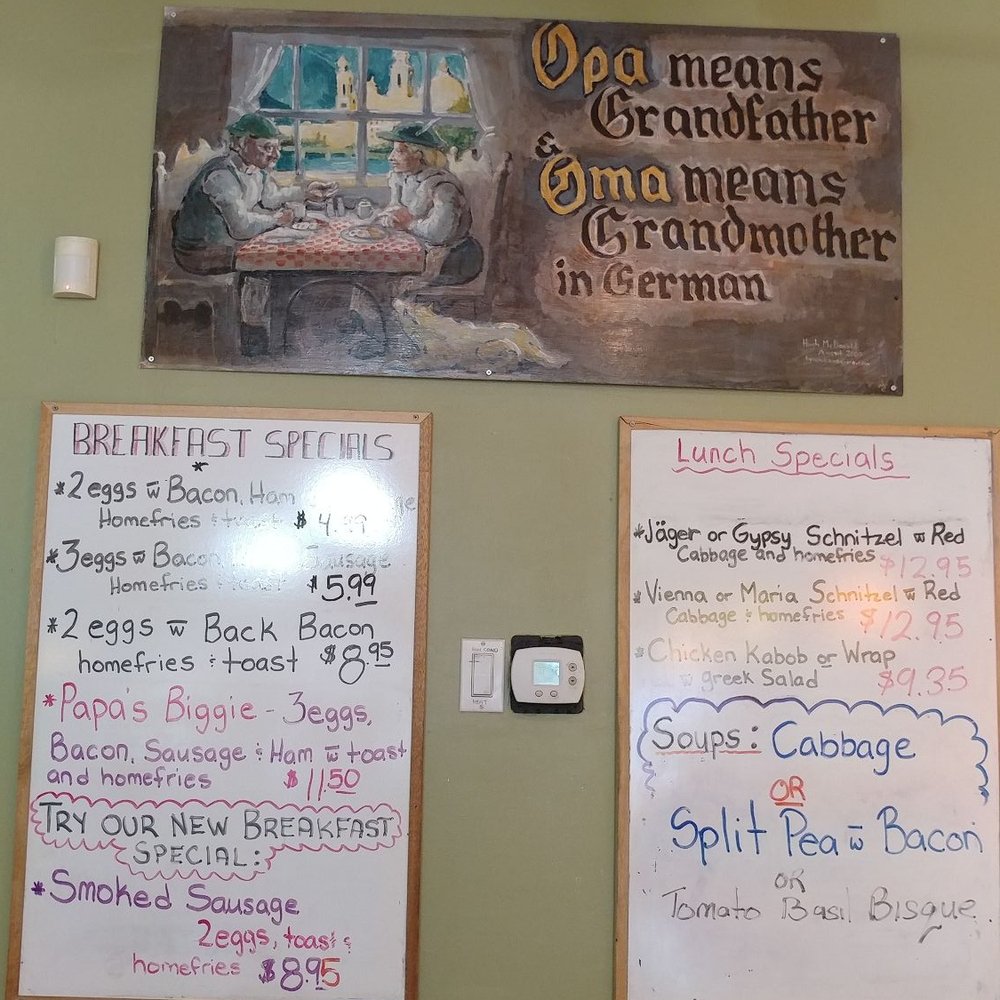 Opa means
Grandfather
&
Oma means
Grandmother
in German
BREAKFAST SPECIALS
*2 eggs w̄ Bacon, Ham
Homefries & toast $4.99
*3eggs w̄ Bacon Sausage
Homefries toast $5.99
*2 eggs w̄ Back Bacon
homefries & toast $8.95
*Papa's Biggie - 3eggs,
Bacon, Sausage & Ham w̄ toast
and homefries $11.50
TRY OUR NEW BREAKFAST
SPECIAL:
*Smoked Sausage
2eggs, toast &
homefries $8.95
Lunch Specials
*Jäger or Gypsy Schnitzel w̄ Red
Cabbage and homefries $12.95
*Vienna or Maria Schnitzel w̄ Red
Cabbage & homefries $12.95
*Chicken Kabob or Wrap
w̄ greek Salad $9.35
Soups: Cabbage
OR
Split Pea w̄ Bacon
OR
Tomato Basil Bisque